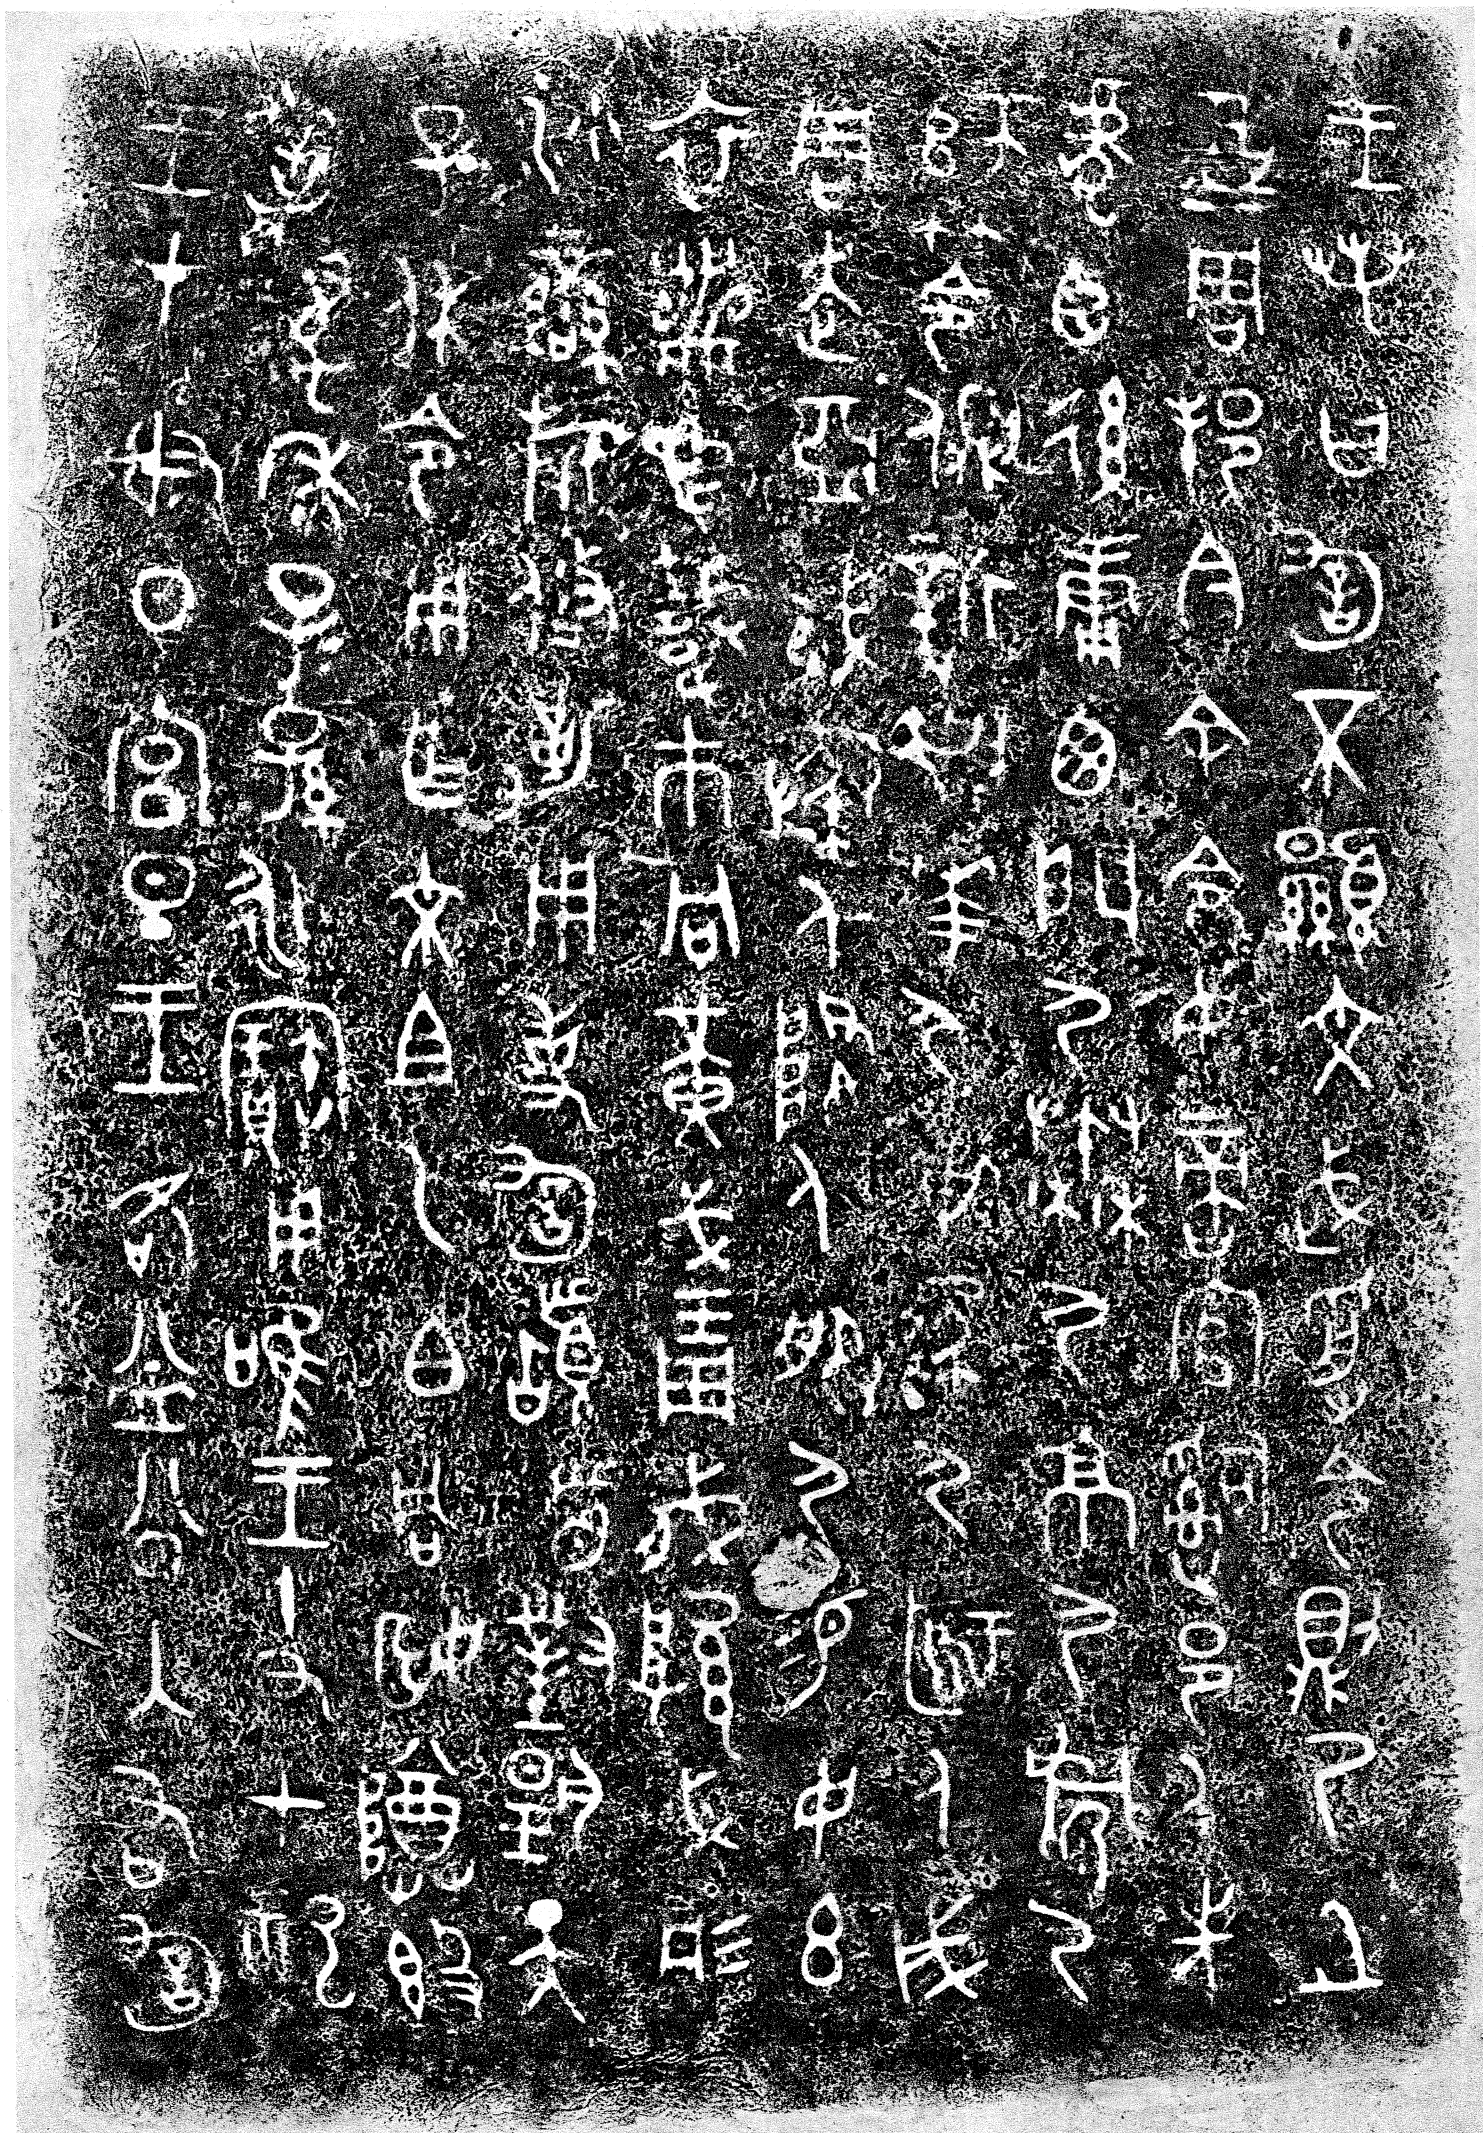 王若曰訇不顯文武受令則乃且
奠周邦今余令女啻官𤔲邑人先
虎臣後庸西門尸秦尸京尸𢑚尸
師笭側新華尸弁尸人成
周走亞戍秦人降人服尸易女玄
衣黹屯載巿冋黃戈琱胾厚必彤
沙䜌旂攸勒用事訇𩒨首對揚天
子休令用乍文且乙白同姬尊𣪘
訇萬年子子孫永寶用唯王十又七祀
王才射日宮旦王各益公入右訇